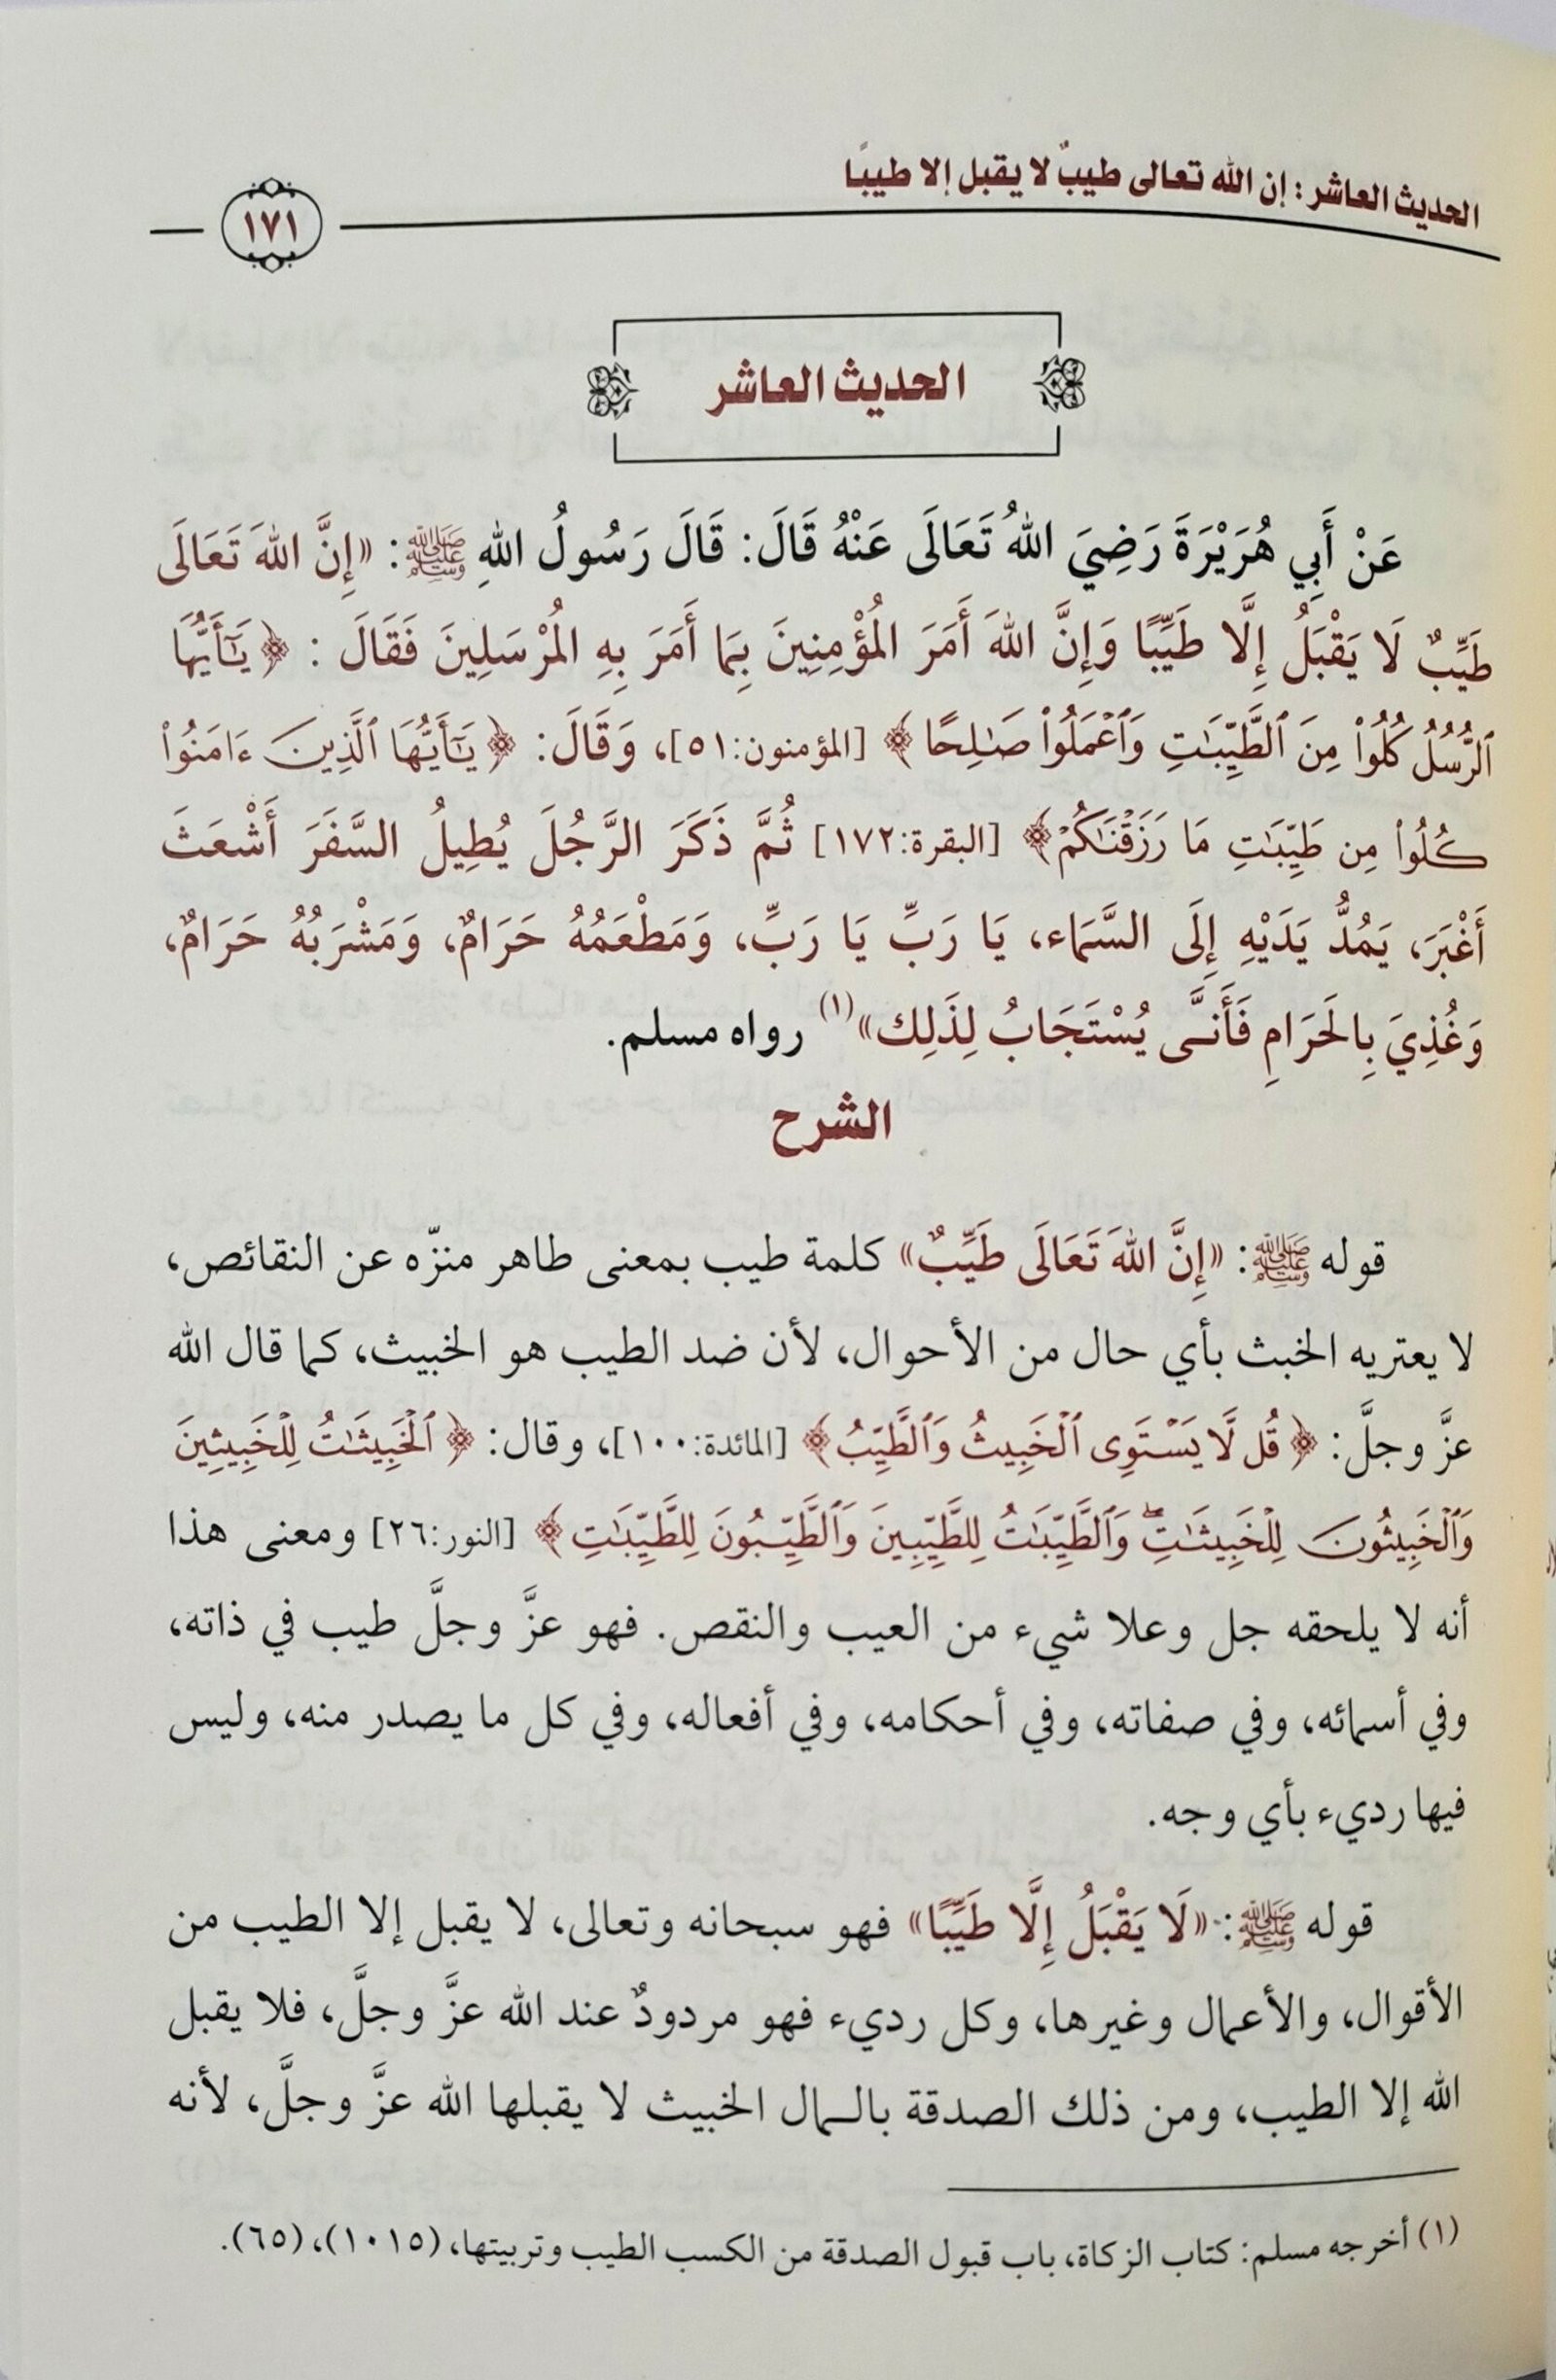 الحديث العاشر: إن الله تعالى طيبٌ لا يقبل إلا طيبًا
١٧١
الحديث العاشر
عَنْ أَبِي هُرَيْرَةَ رَضِيَ اللهُ تَعَالَى عَنْهُ قَالَ: قَالَ رَسُولُ اللهِ ﷺ: «إِنَّ اللهَ تَعَالَى
طَيِّبٌ لَا يَقْبَلُ إِلَّا طَيِّبًا وَإِنَّ اللهَ أَمَرَ المُؤْمِنِينَ بِمَا أَمَرَ بِهِ المُرْسَلِينَ فَقَالَ: ﴿يَٰٓأَيُّهَا
ٱلرُّسُلُ كُلُواْ مِنَ ٱلطَّيِّبَٰتِ وَٱعْمَلُواْ صَٰلِحًا﴾ [المؤمنون:٥١]، وَقَالَ: ﴿يَٰٓأَيُّهَا ٱلَّذِينَ ءَامَنُواْ
كُلُواْ مِن طَيِّبَٰتِ مَا رَزَقْنَٰكُمْ﴾ [البقرة:١٧٢] ثُمَّ ذَكَرَ الرَّجُلَ يُطِيلُ السَّفَرَ أَشْعَثَ
أَغْبَرَ، يَمُدُّ يَدَيْهِ إِلَى السَّمَاء، يَا رَبِّ يَا رَبِّ، وَمَطْعَمُهُ حَرَامٌ، وَمَشْرَبُهُ حَرَامٌ،
وَغُذِيَ بِالحَرَامِ فَأَنَّى يُسْتَجَابُ لِذَلِك»(١) رواه مسلم.
الشرح
قوله ﷺ: «إِنَّ اللهَ تَعَالَى طَيِّبٌ» كلمة طيب بمعنى طاهر منزّه عن النقائص،
لا يعتريه الخبث بأي حال من الأحوال، لأن ضد الطيب هو الخبيث، كما قال الله
عزَّ وجلَّ: ﴿قُل لَّا يَسْتَوِى ٱلْخَبِيثُ وَٱلطَّيِّبُ﴾ [المائدة:١٠٠]، وقال: ﴿ٱلْخَبِيثَٰتُ لِلْخَبِيثِينَ
وَٱلْخَبِيثُونَ لِلْخَبِيثَٰتِۖ وَٱلطَّيِّبَٰتُ لِلطَّيِّبِينَ وَٱلطَّيِّبُونَ لِلطَّيِّبَٰتِ﴾ [النور:٢٦] ومعنى هذا
أنه لا يلحقه جل وعلا شيء من العيب والنقص. فهو عزَّ وجلَّ طيب في ذاته،
وفي أسمائه، وفي صفاته، وفي أحكامه، وفي أفعاله، وفي كل ما يصدر منه، وليس
فيها رديء بأي وجه.
قوله ﷺ: «لَا يَقْبَلُ إِلَّا طَيِّبًا» فهو سبحانه وتعالى، لا يقبل إلا الطيب من
الأقوال، والأعمال وغيرها، وكل رديء فهو مردودٌ عند الله عزَّ وجلَّ، فلا يقبل
الله إلا الطيب، ومن ذلك الصدقة بالمال الخبيث لا يقبلها الله عزَّ وجلَّ، لأنه
(١) أخرجه مسلم: كتاب الزكاة، باب قبول الصدقة من الكسب الطيب وتربيتها، (١٠١٥)، (٦٥).